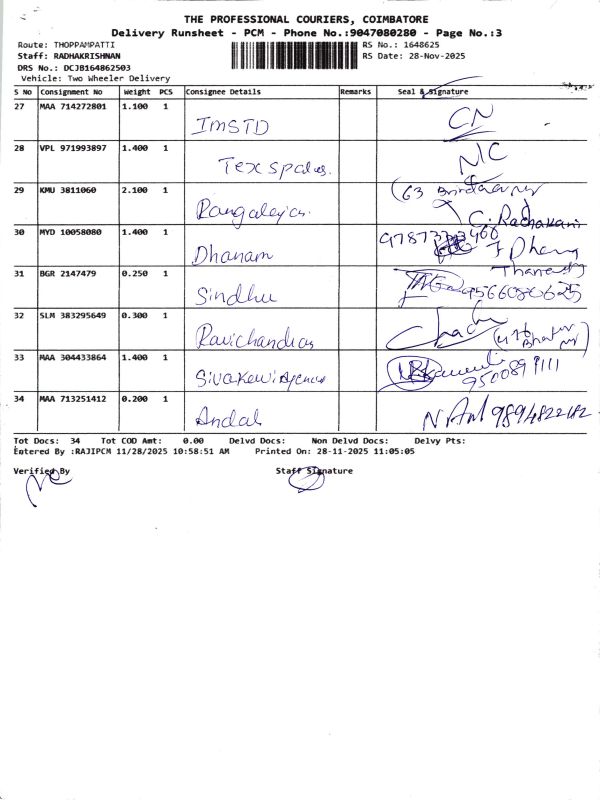 THE PROFESSIONAL COURIERS, COIMBATORE
Delivery Runsheet - PCM - Phone No.:9047080280 - Page No.:3
Route: THOPPAMPATTI RS No.: 1648625
Staff: RADHAKRISHNAN RS Date: 28-Nov-2025
DRS No.: DCJB164862503
Vehicle: Two Wheeler Delivery
S No Consignment No Weight PCS Consignee Details Remarks Seal & Signature
27 MAA 714272801 1.100 1 IMSTD CN
28 VPL 971993897 1.400 1 Tex spades. NC
29 KMU 3811060 2.100 1 (63
C. Radhakani
30 MYD 10058080 1.400 1 Dhanam
31 BGR 2147479 0.250 1 Sindhu 9566080625
32 SLM 383295649 0.300 1 Ravichandran
33 MAA 304433864 1.400 1
34 MAA 713251412 0.200 1 Andal 9894822182
Tot Docs: 34 Tot COD Amt: 0.00 Delvd Docs: Non Delvd Docs: Delvy Pts:
Entered By :RAJIPCM 11/28/2025 10:58:51 AM Printed On: 28-11-2025 11:05:05
Verified By Staff Signature